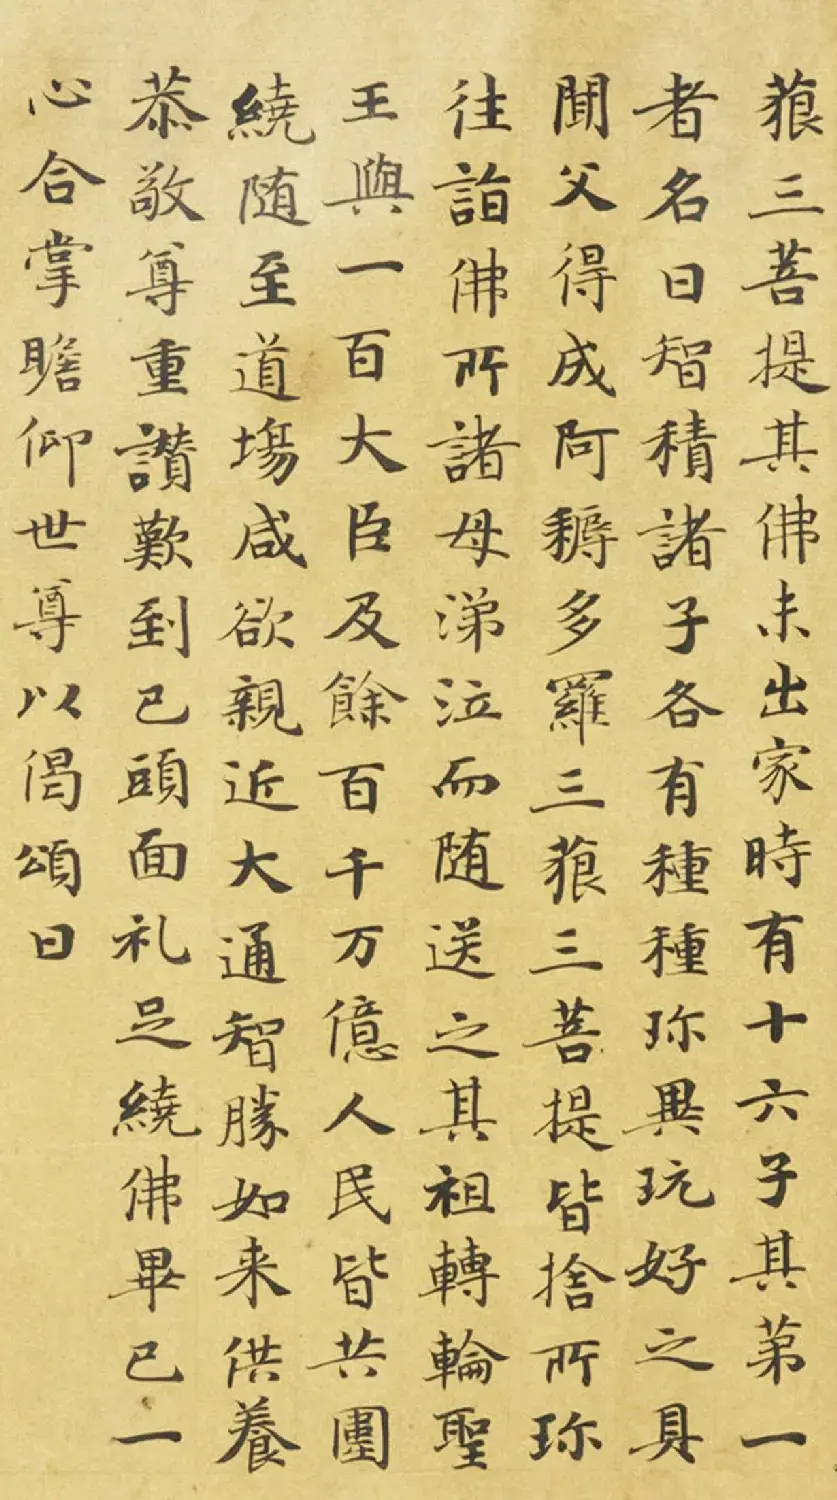 藐三菩提其佛未出家時有十六子其第一
者名曰智積諸子各有種種珎異玩好之具
聞父得成阿耨多羅三藐三菩提皆捨所珎
往詣佛所諸母涕泣而随送之其祖轉輪聖
王與一百大臣及餘百千万億人民皆共圍
繞随至道場咸欲親近大通智勝如来供養
恭敬尊重讃歎到已頭面礼足繞佛畢已一
心合掌瞻仰世尊以偈頌曰